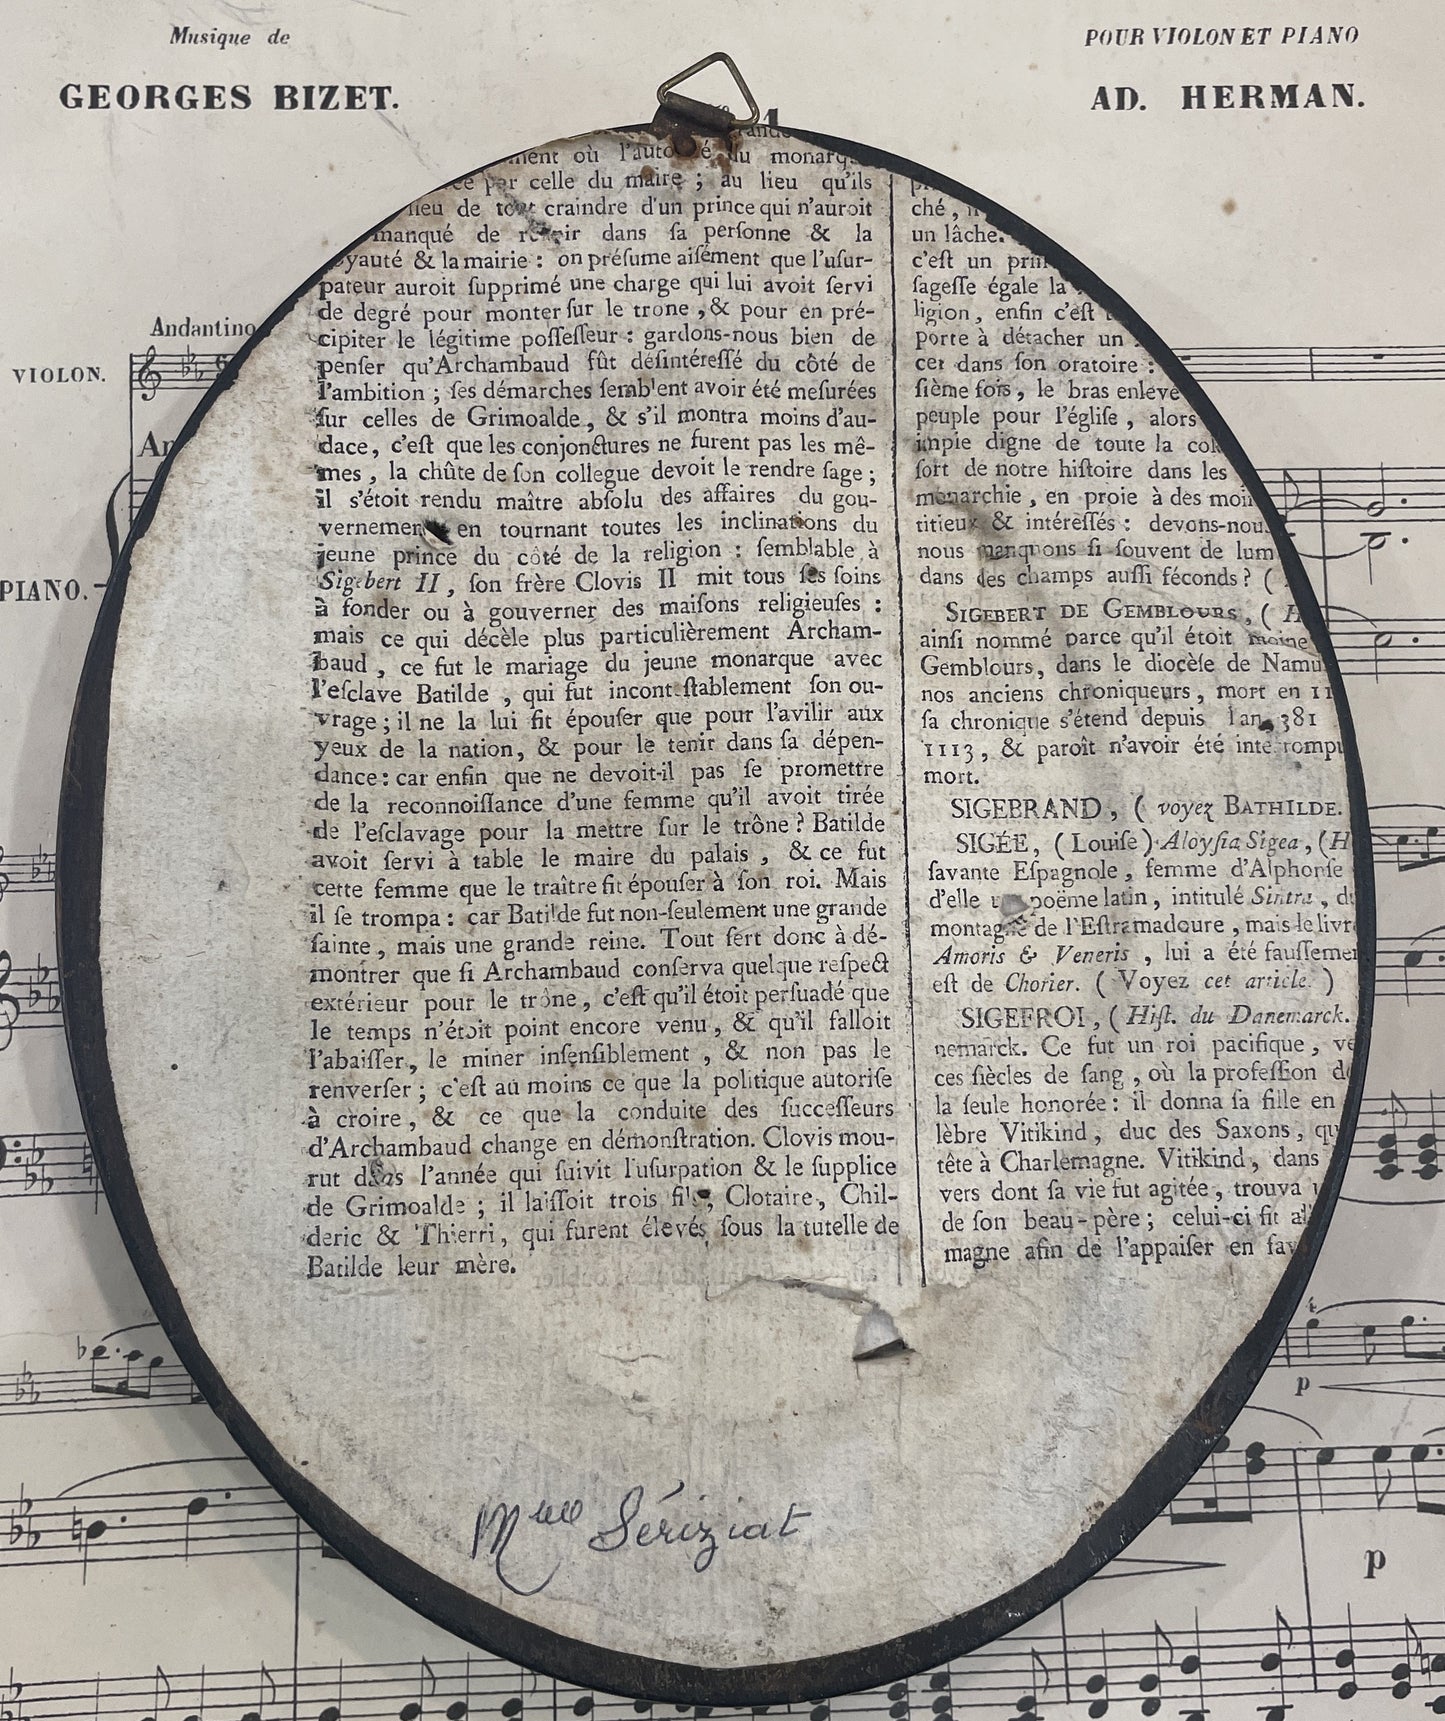 Musique de
GEORGES BIZET.
POUR VIOLON ET PIANO
AD. HERMAN.
Andantino
VIOLON.
An
PIANO.
où l'autorité du monarq
par celle du maire ; au lieu qu'ils
lieu de tout craindre d'un prince qui n'auroit
manqué de réunir dans ſa perſonne & la
royauté & la mairie : on préſume aiſément que l'uſur-
pateur auroit ſupprimé une charge qui lui avoit ſervi
de degré pour monter ſur le trone , & pour en pré-
cipiter le légitime poſſeſſeur : gardons-nous bien de
penſer qu'Archambaud fût déſintéreſſé du côté de
l'ambition ; ſes démarches ſemblent avoir été meſurées
ſur celles de Grimoalde , & s'il montra moins d'au-
dace, c'eſt que les conjonctures ne furent pas les mê-
mes , la chûte de ſon collegue devoit le rendre ſage ;
il s'étoit rendu maître abſolu des affaires du gou-
vernement en tournant toutes les inclinations du
jeune prince du côté de la religion : ſemblable à
Sigebert II , ſon frère Clovis II mit tous ſes ſoins
à fonder ou à gouverner des maiſons religieuſes :
mais ce qui décèle plus particulièrement Archam-
baud , ce fut le mariage du jeune monarque avec
l'eſclave Batilde , qui fut inconteſtablement ſon ou-
vrage ; il ne la lui fit épouſer que pour l'avilir aux
yeux de la nation, & pour le tenir dans ſa dépen-
dance : car enfin que ne devoit-il pas ſe promettre
de la reconnoiſſance d'une femme qu'il avoit tirée
de l'eſclavage pour la mettre ſur le trône ? Batilde
avoit ſervi à table le maire du palais , & ce fut
cette femme que le traître fit épouſer à ſon roi. Mais
il ſe trompa : car Batilde fut non-ſeulement une grande
ſainte , mais une grande reine. Tout ſert donc à dé-
montrer que ſi Archambaud conſerva quelque reſpect
extérieur pour le trône , c'eſt qu'il étoit perſuadé que
le temps n'étoit point encore venu , & qu'il falloit
l'abaiſſer, le miner inſenſiblement , & non pas le
renverſer ; c'eſt au moins ce que la politique autoriſe
à croire , & ce que la conduite des ſucceſſeurs
d'Archambaud change en démonſtration. Clovis mou-
rut dans l'année qui ſuivit l'uſurpation & le ſupplice
de Grimoalde ; il laiſſoit trois fils, Clotaire, Chil-
deric & Thierri, qui furent élevés ſous la tutelle de
Batilde leur mère.
ché ,
un lâche.
c'eſt un prin
ſageſſe égale la
ligion , enfin c'eſt
porte à détacher un
cer dans ſon oratoire :
ſième fois , le bras enlevé
peuple pour l'égliſe , alors
impie digne de toute la col
ſort de notre hiſtoire dans les
monarchie , en proie à des moin
titieux & intéreſſés : devons-nou
nous manquons ſi ſouvent de lum
dans des champs auſſi féconds ? (
SIGEBERT DE GEMBLOURS, ( H
ainſi nommé parce qu'il étoit moine
Gemblours, dans le diocèſe de Namu
nos anciens chroniqueurs , mort en 11
ſa chronique s'étend depuis l'an 381
1113 , & paroît n'avoir été interrompu
mort.
SIGEBRAND , ( voyez BATHILDE.
SIGÉE, ( Louiſe ) Aloyſia Sigea , ( H
ſavante Eſpagnole , femme d'Alphonſe
d'elle un poëme latin , intitulé Sintra , du
montagne de l'Eſtramadoure , mais le livr
Amoris & Veneris , lui a été fauſſemen
eſt de Chorier. ( Voyez cet article. )
SIGEFROI , ( Hiſt. du Danemarck.
nemarck. Ce fut un roi pacifique , ve
ces ſiècles de ſang , où la profeſſion d
la ſeule honorée : il donna ſa fille en
lèbre Vitikind , duc des Saxons , qu
tête à Charlemagne. Vitikind , dans
vers dont ſa vie fut agitée , trouva
de ſon beau-père ; celui-ci fit al
magne afin de l'appaiſer en fav
Mme Sériziat
4
p
p